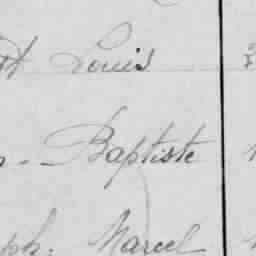 Louis
Baptiste
ph. Marcel